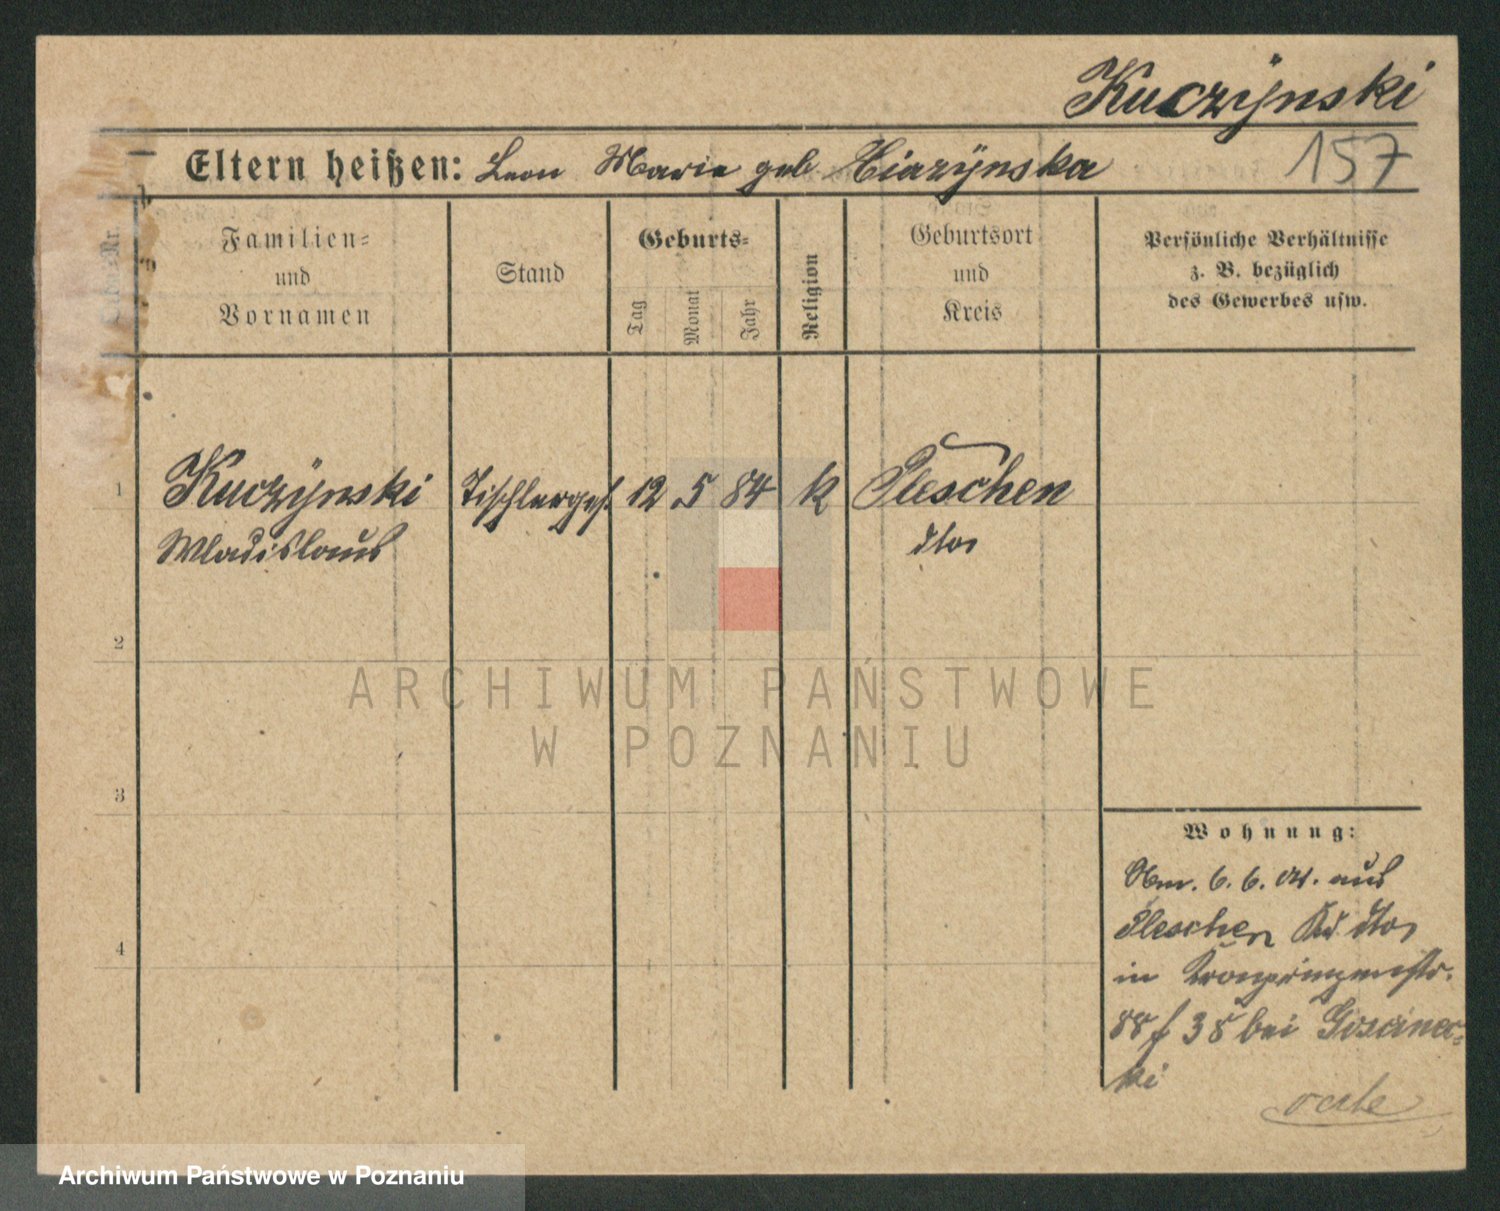 Kuczÿnski
157
Eltern heißen: Leon Marie geb.
Lfde. Nr.
Familien-
und
Vornamen
Stand
Geburts-
Tag
Monat
Jahr
Religion
Geburtsort
und
Kreis
Persönliche Verhältnisse
z. B. bezüglich
des Gewerbes usw.
1 Kuczÿnski Tischlerges. 12 5 84 k Pleschen
Wladislaus dto.
2
3
4
Wohnung:
6. 6. 04. aus
Pleschen Kr. dto.
in Kronprinzenstr.
88 f 38 bei Goscinec-
ki
ARCHIWUM PAŃSTWOWE
W POZNANIU
Archiwum Państwowe w Poznaniu